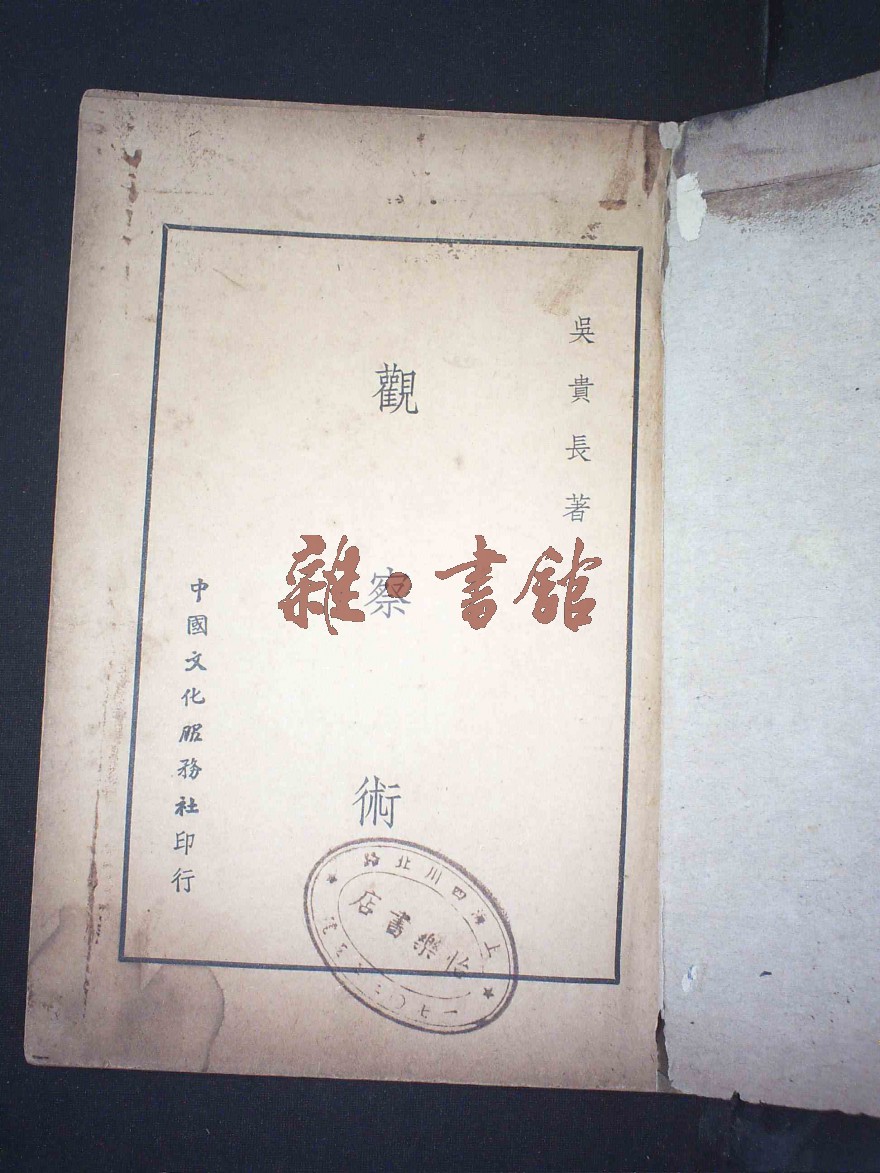 吳貴長著
觀察術
中國文化服務社印行
雜·書館
上海四川北路
怡樂書店